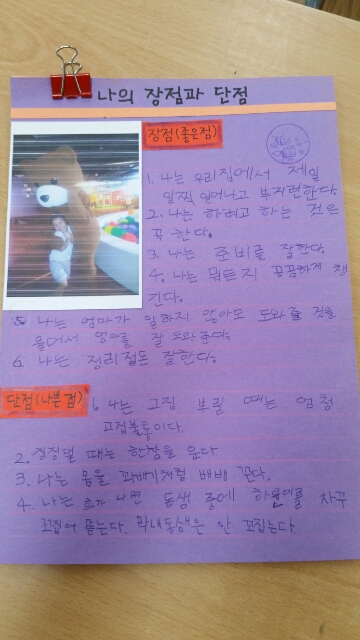 나의 장점과 단점
장점(좋은점)
1. 나는 우리집에서 제일
일찍 일어나고 부지런하다.
2. 나는 하려고 하는 것은
꼭 한다.
3. 나는 준비를 잘한다.
4. 나는 뭐든지 꼼꼼하게 챙
긴다.
5. 나는 엄마가 말하지 않아도 도와줄 것을
물어서 엄마를 잘 도와준다.
6. 나는 정리정돈 잘한다.
단점(나쁜점)
1. 나는 고집 부릴 때는 엄청
고집불통이다.
2. 징징댈 때는 한참을 운다
3. 나는 몸을 꽈배기처럼 배배 꼰다.
4. 나는 화가 나면 동생 중에 를 자꾸
꼬집어 뜯는다. 막내동생은 안 꼬집는다